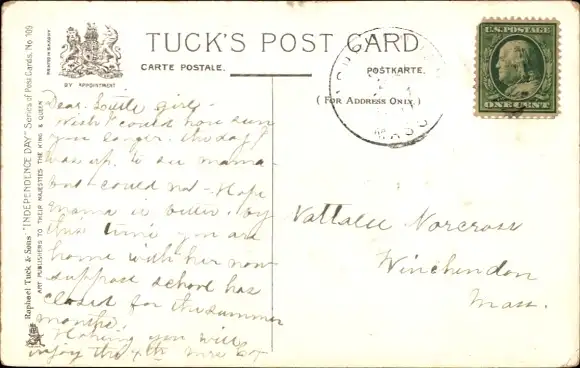 TUCK'S POST CARD
CARTE POSTALE.
POSTKARTE.
(FOR ADDRESS ONLY.)
BY APPOINTMENT
PRINTED IN SAXONY
Raphael Tuck & Sons "INDEPENDENCE DAY" Series of Post Cards. No. 109
ART PUBLISHERS TO THEIR MAJESTIES THE KING & QUEEN
U.S. POSTAGE
ONE CENT
MASS
Dear Little girl -
Wish I could have seen
you longer. the day I
was up. to see mama -
but could not - Hope
mama is better. by
this time you are
home with her now
suppose school has
closed for the summer
months.
Hoping you will
enjoy the 4th Mrs
Nattalee Norcross
Winchendon
Mass.